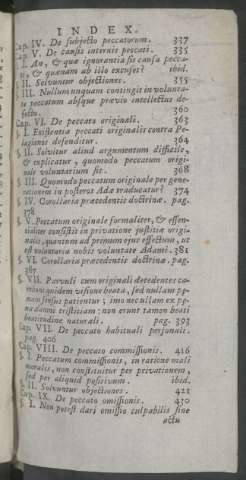 INDEX.
Cap. IV. De subjecto peccatorum. 337
Cap. V. De causis internis peccati. 335
§. I. An, & quæ ignorantia sit causa pecca-
ti, & quænam ab illo excuset? ibid.
§. II. Solvuntur objectiones. 355
§. III. Nullum unquam contingit in volunta-
te peccatum absque prævio intellectus de-
fectu. 360
Cap. VI. De peccato originali. 363
§. I. Existentia peccati originalis contra Pe-
lagianos defenditur. 364
§. II. Solvitur aliud argumentum difficile,
& explicatur, quomodo peccatum origi-
nale voluntarium sit. 368
§. III. Quomodo peccatum originale per gene-
rationem in posteros Adæ traducatur? 374
§. IV. Corollaria præcedentis doctrinæ. pag.
378
§. V. Peccatum originale formaliter, & essen-
tialiter consistit in privatione justitiæ origi-
nalis, quantum ad primum ejus effectum, ut
est voluntaria nobis voluntate Adami. 381
§. VI. Corollaria præcedentis doctrinæ. pag.
387
§. VII. Parvuli cum originali decedentes ca-
rent quidem visione beata, sed nullam pœ-
nam sensus patientur; imo nec ullam ex pœ-
na damni tristitiam: non erunt tamen beati
beatitudine naturali. pag. 393
Cap. VII. De peccato habituali personali.
pag. 406
Cap. VIII. De peccato commissionis. 416
§. I. Peccatum commissionis, in ratione mali
moralis, non constituitur per privationem,
sed per aliquid positivum. ibid.
§. II. Solvuntur objectiones. 423
Cap. IX. De peccato omissionis. 430
§. I. Non potest dari omissio culpabilis sine
actu